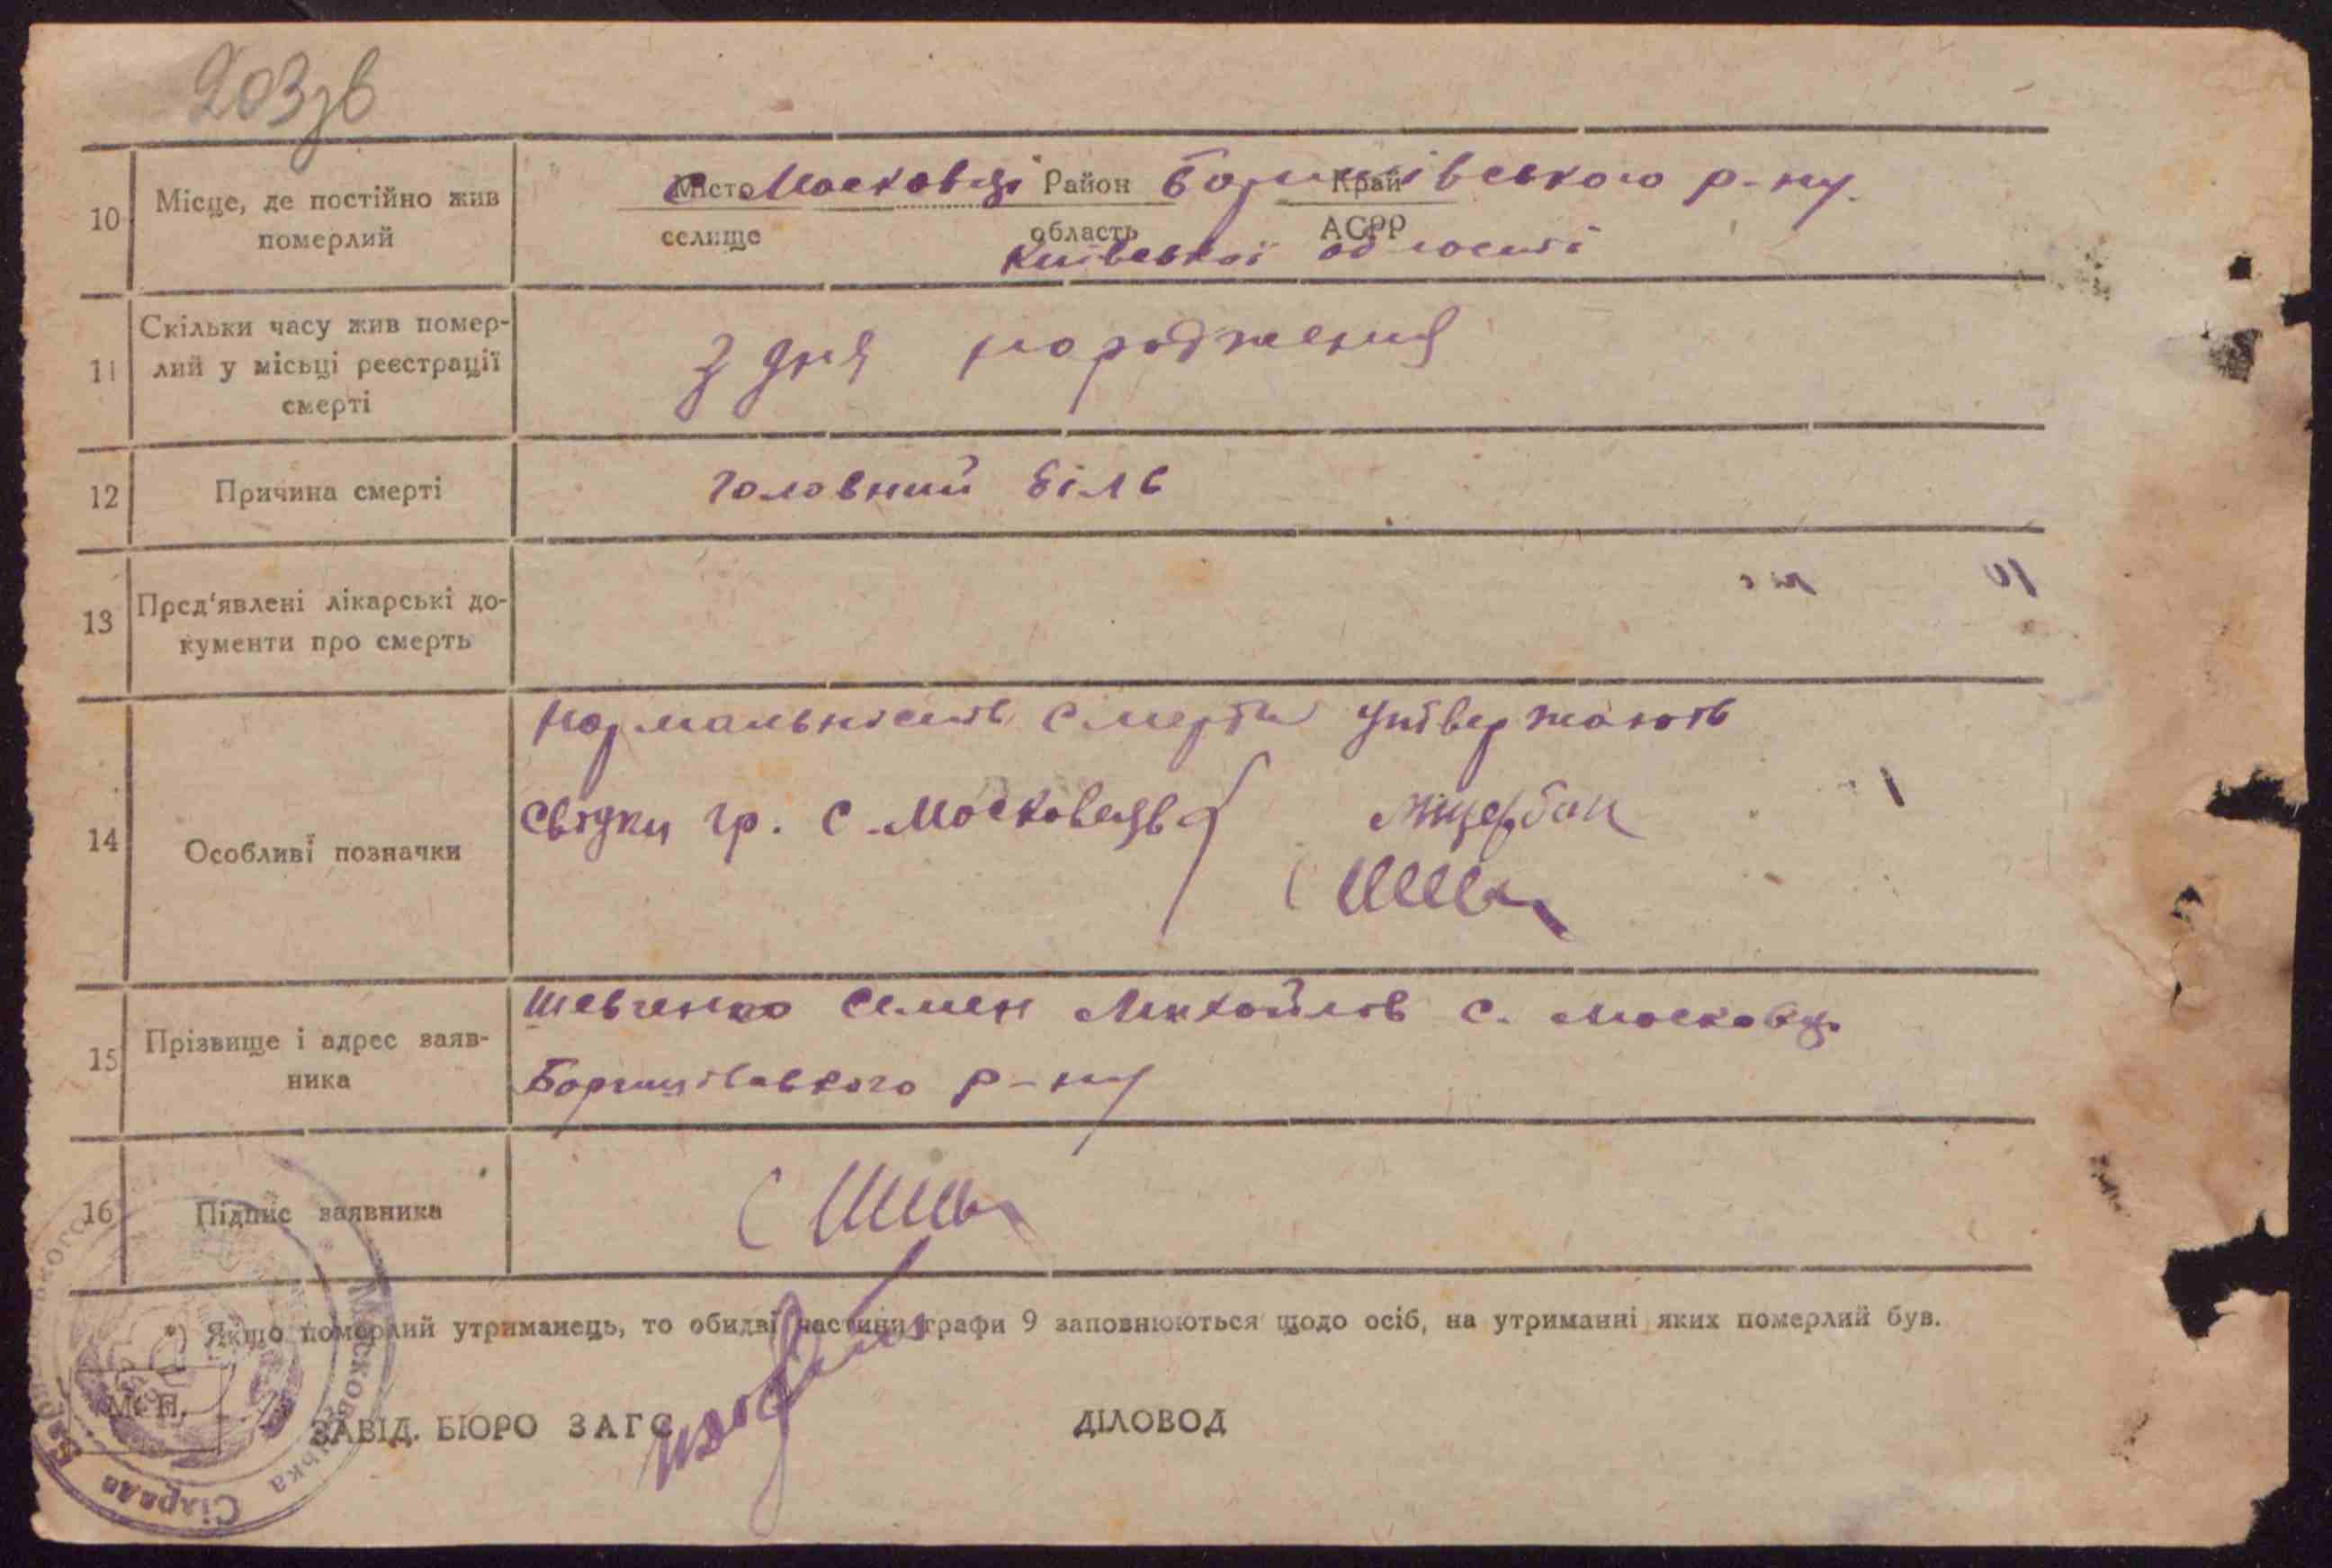 203зв
10 Місце, де постійно жив померлий
Місто Район Край
с Московці Борщівського р-ну.
селище область АСРР
Київської області
11 Скільки часу жив помер-
лий у місці реєстрації
смерті
з дня народження
12 Причина смерті
Головний біль
13 Пред'явлені лікарські до-
кументи про смерть
14 Особливі позначки
Нормальність смерти
свідки гр. с. Московець
Міщербак
15 Прізвище і адрес заяв-
ника
Шевченко Семен Михайлов с. Московці
Борщівського р-ну
16 Підпис заявника
*) Якщо померлий утриманець, то обидві частини графи 9 заповнюються щодо осіб, на утриманні яких померлий був.
М. П.
ЗАВІД. БЮРО ЗАГС
ДІЛОВОД
Московецька Сілрада